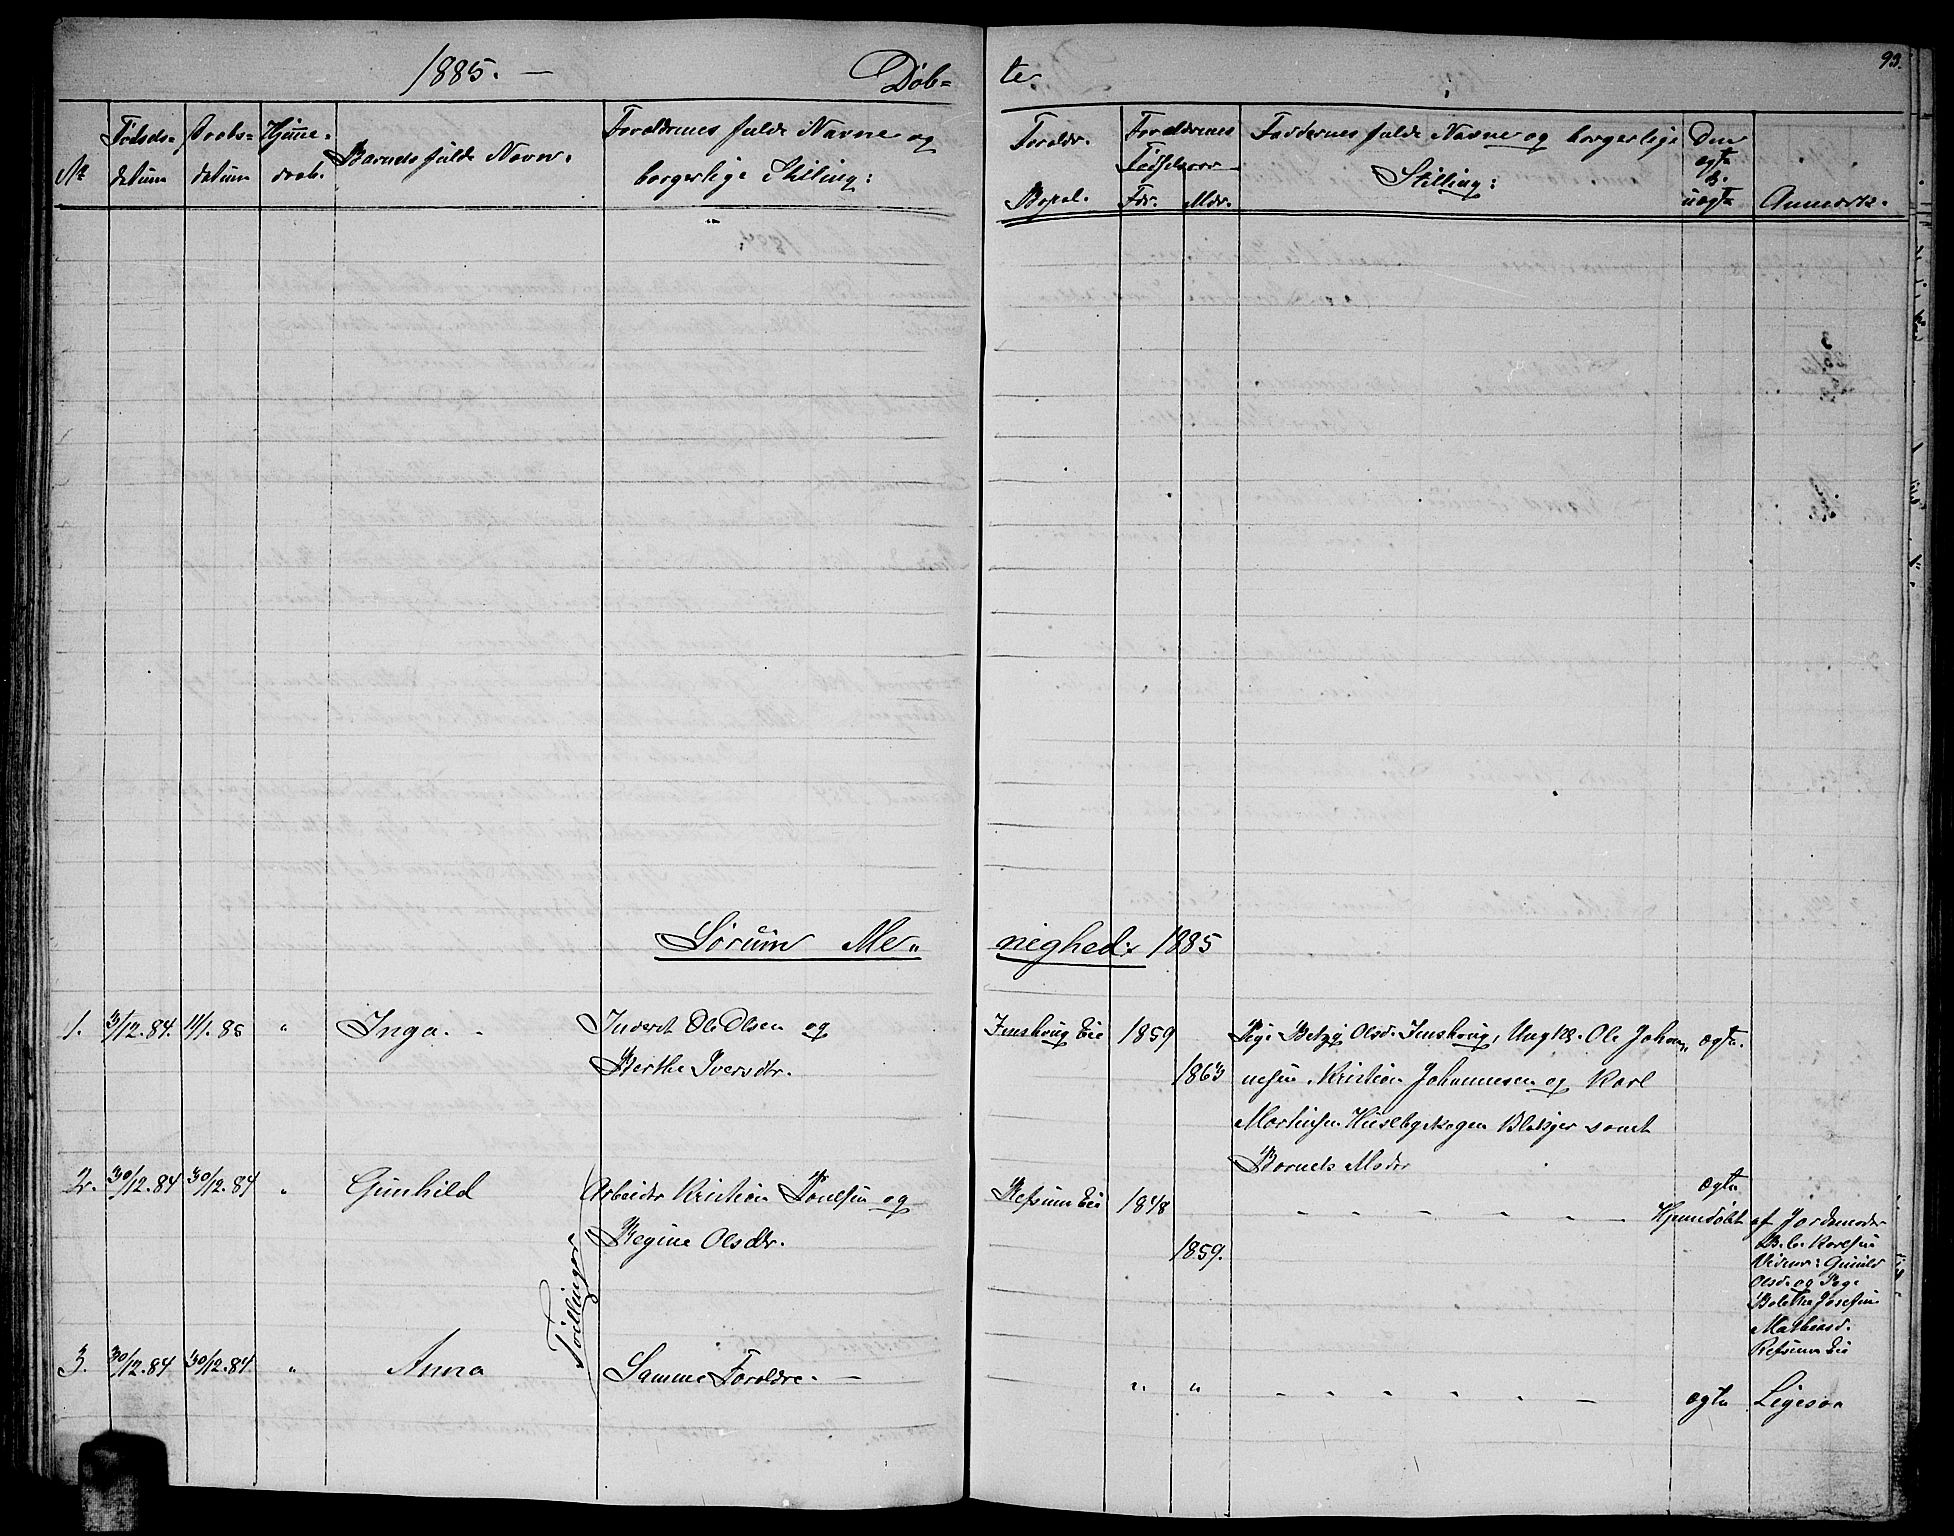 1885. — Døb=
te.
93.
No
Fødsels=
datum
Daabs=
datum
Hjemme=
daab.
Barnets fulde Navn.
Forældrenes fulde Navne og
borgerlige Stilling:
Forældr.
Bopæl.
Forældrenes
Fødselsaar
Fdr. Mdr.
Faddernes fulde Navne og borgerlige
Stilling:
Om
ægte
el.
uægte
Anmærk.
Sørum Me=
nighed: 1885
1. 31/12.84. 11/1.85 " Inga. - Inderst Ole Olsen og
Berthe Iversdtr.
Imshoug Eie 1859
1863
Pige Betzy Olsd. Imshoug, Ungkl. Ole Johan= ægte.
nesen Kristian Johannesen og Karl
Martinsen Husebyskogen Blakjer samt
Barnets Moder
2. 30/12.84 30/12.84 " Gunhild Arbeider Kristian Poulsen og
Regine Olsdtr.
Refsum Eie 1848
1859.
ægte
Hjemdøbt af Jordemoder
B. C. Karlsen
Vidner: Gunild
Olsd. og Pige
Bolethe Josefine
Mathiasd.
Refsum Eie
Tvillinger
3. 30/12.84 30/12.84 " Anna Samme Forældre. —
" " ægte Ligesaa